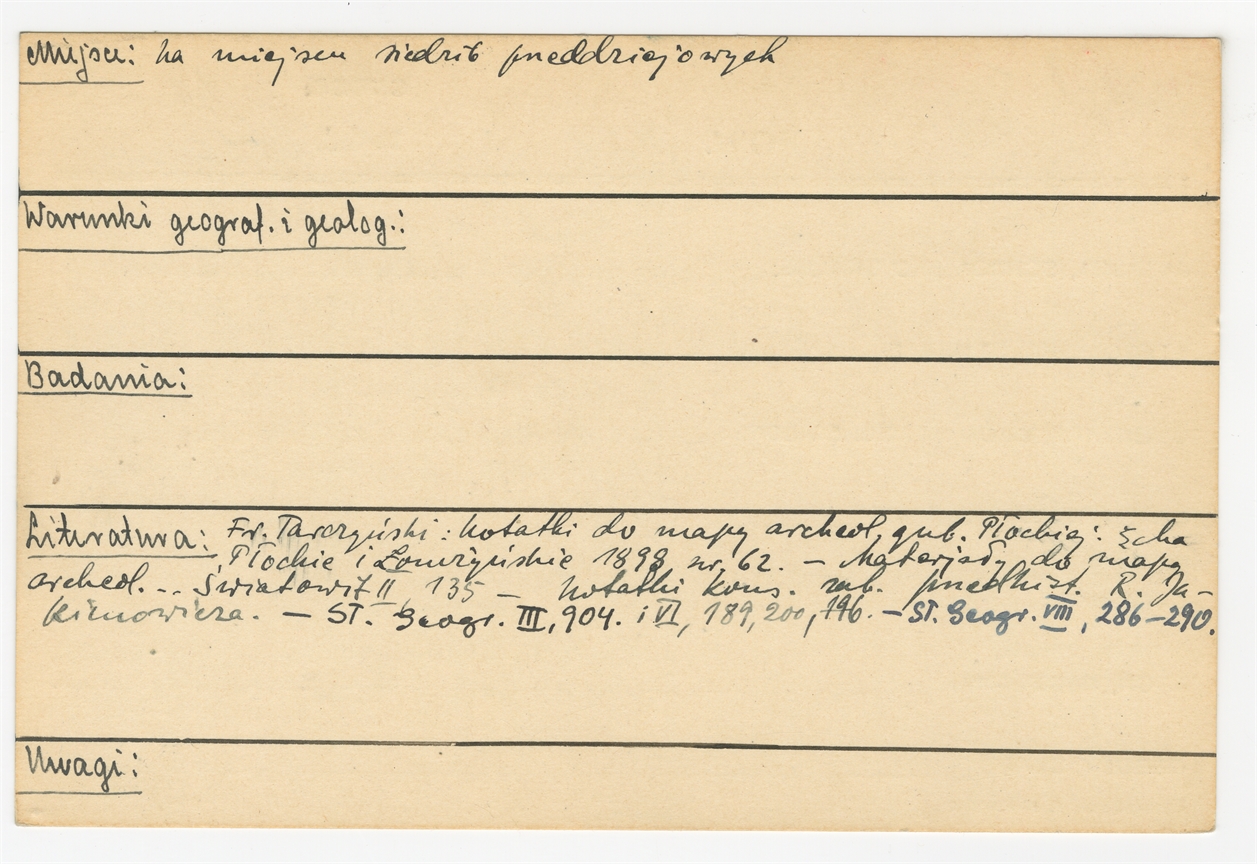 Miejsce: na miejscu siedzib przeddziejowych
Warunki geograf. i geolog.:
Badania:
Literatura: Fr. Tarczyński: Notatki do mapy archeol. gub. Płockiej: Echa
Płockie i Łomżyńskie 1899 nr, 62. – Materjały do mapy
archeol... Światowit II 135 – Notatki kons. zab. przedhist. R. Ja-
kimowicza. – Sł. Geogr. III, 904. i VI, 189, 200, – Sł. Geogr. VIII, 286–290.
Uwagi: